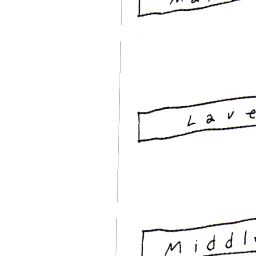 Ma
Lave
Middl